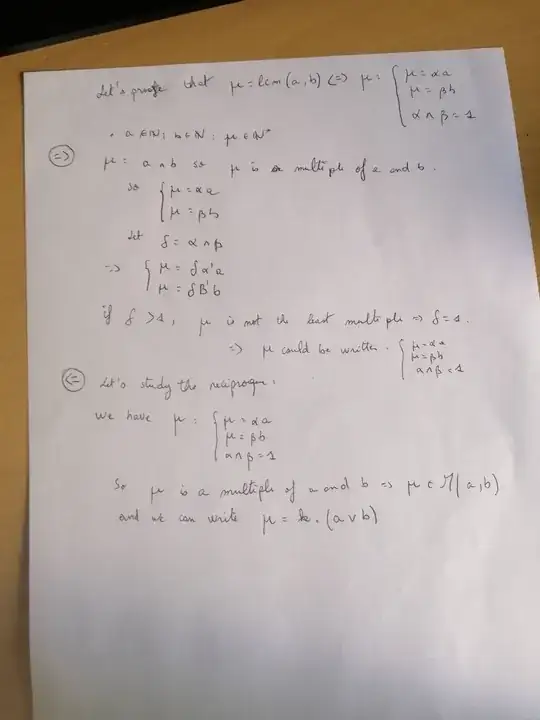 Let's prove that μ = lcm(a,b) <=> μ: { μ = αa
μ = βb
α ∧ β = 1
• a ∈ ℕ; b ∈ ℕ; μ ∈ ℕ*
(=>) μ = a ∧ b so μ is a multiple of a and b.
so { μ = αa
μ = βb
let δ = α ∧ β
=> { μ = δα'a
μ = δβ'b
if δ > 1, μ is not the least multiple => δ = 1.
=> μ could be written. { μ = αa
μ = βb
α ∧ β = 1
(<=) Let's study the reciproque:
We have μ: { μ = αa
μ = βb
α ∧ β = 1
So μ is a multiple of a and b => μ ∈ M(a,b)
and we can write μ = k. (a ∨ b)